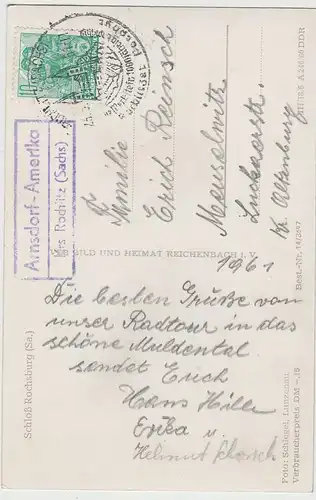 Schloß Rochsburg (Sa.)
Arnsdorf-Amerika
Krs Rochlitz (Sachs)
10
DDR
Familie
Erich Reinsch
Meuselwitz
Lucknerstr.
Kr. Altenburg
VEB BILD UND HEIMAT REICHENBACH I. V.
1961
Die besten Grüße von
unser Radtour in das
schöne Muldental
sendet Erich
Hans Hiller
Erika u.
Helmut
A 246/60 DDR
Best.-Nr. 14/2457
Foto: Schlegel, Lunzenau
Verbraucherpreis DM -,15